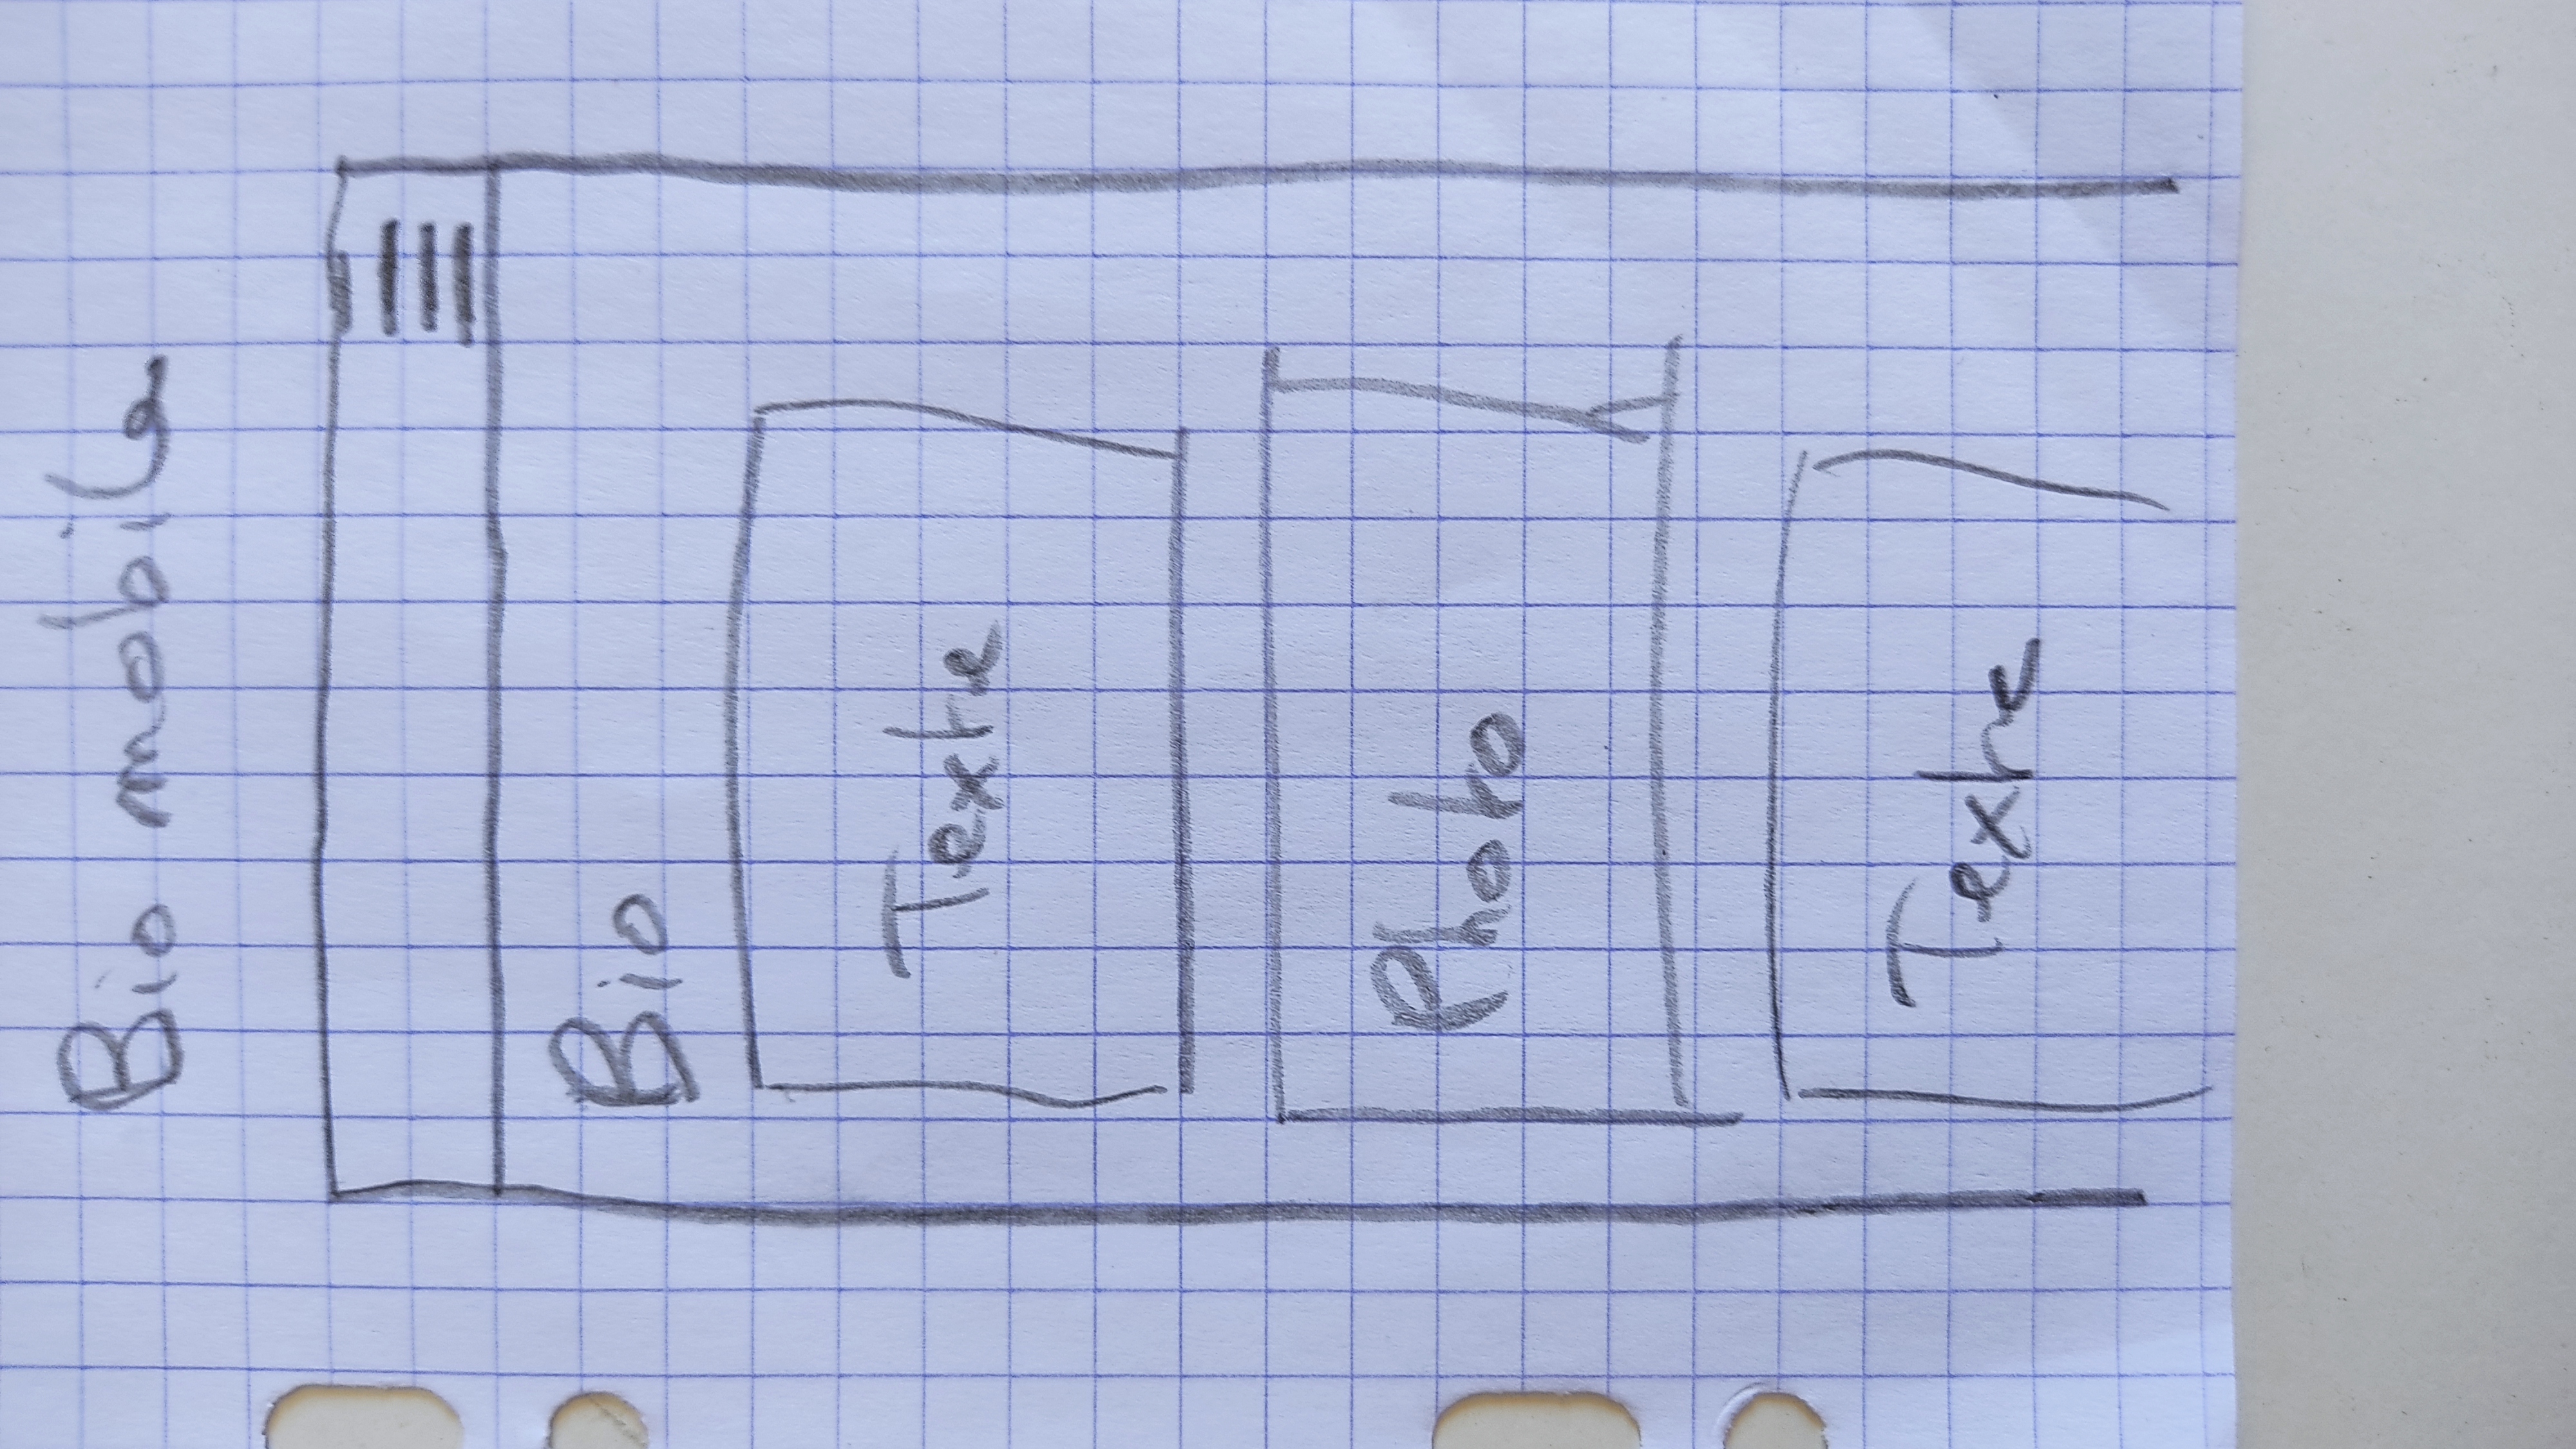 Bio mobile
Bio
Texte
Photo
Texte